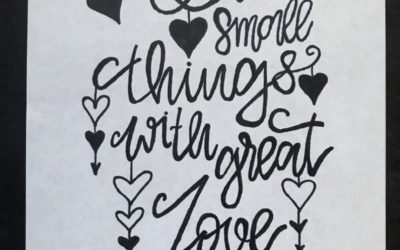 small
things
with great
Love